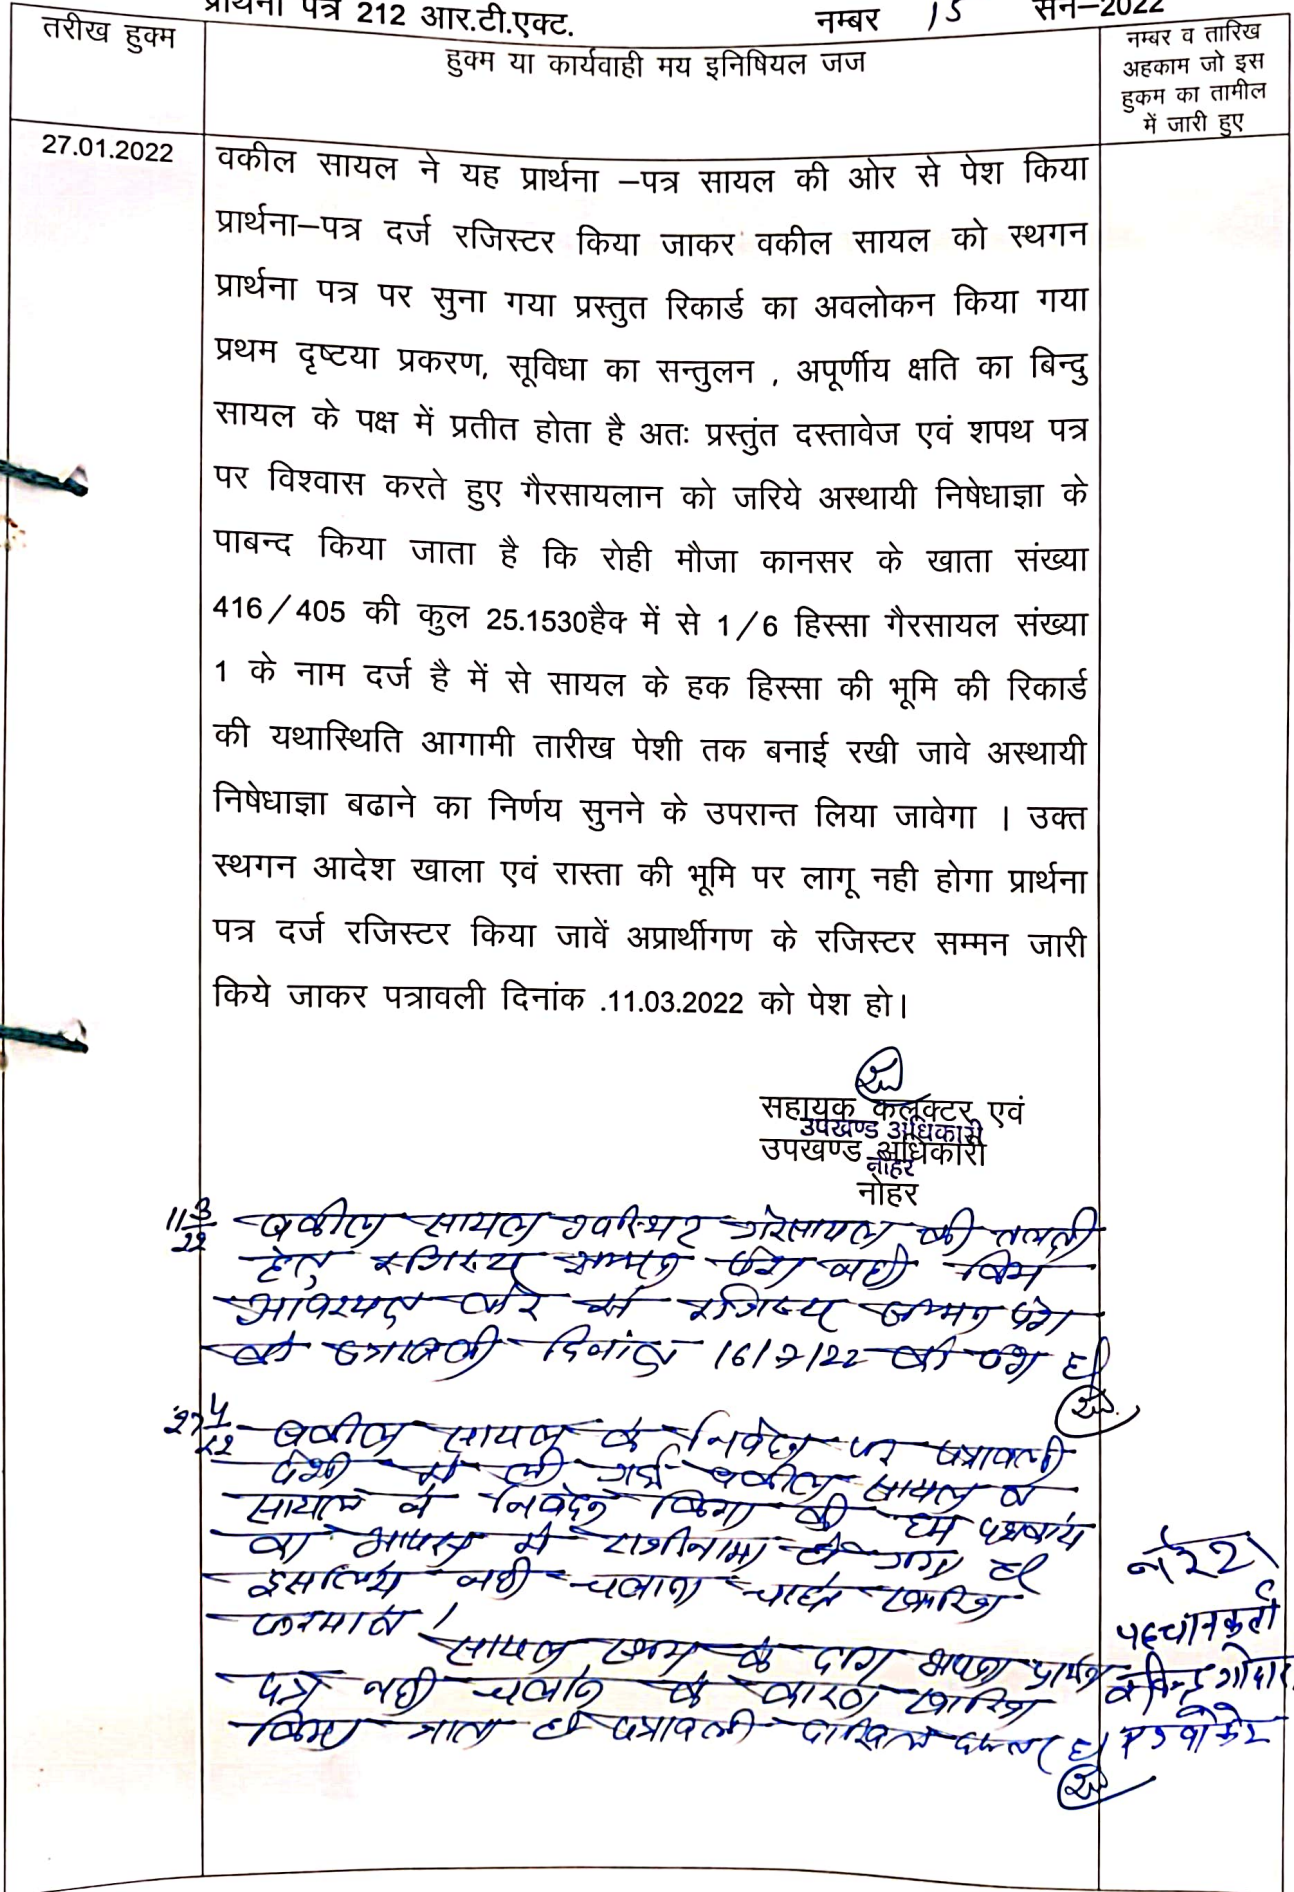 प्रार्थना पत्र 212 आर.टी.एक्ट. नम्बर 15 सन–2022
तरीख हुक्म
हुक्म या कार्यवाही मय इनिषियल जज
नम्बर व तारिख
अहकाम जो इस
हुकम का तामील
में जारी हुए
27.01.2022
वकील सायल ने यह प्रार्थना –पत्र सायल की ओर से पेश किया
प्रार्थना–पत्र दर्ज रजिस्टर किया जाकर वकील सायल को स्थगन
प्रार्थना पत्र पर सुना गया प्रस्तुत रिकार्ड का अवलोकन किया गया
प्रथम दृष्टया प्रकरण, सूविधा का सन्तुलन , अपूर्णीय क्षति का बिन्दु
सायल के पक्ष में प्रतीत होता है अतः प्रस्तुंत दस्तावेज एवं शपथ पत्र
पर विश्वास करते हुए गैरसायलान को जरिये अस्थायी निषेधाज्ञा के
पाबन्द किया जाता है कि रोही मौजा कानसर के खाता संख्या
416/405 की कुल 25.1530हैक में से 1/6 हिस्सा गैरसायल संख्या
1 के नाम दर्ज है में से सायल के हक हिस्सा की भूमि की रिकार्ड
की यथास्थिति आगामी तारीख पेशी तक बनाई रखी जावे अस्थायी
निषेधाज्ञा बढाने का निर्णय सुनने के उपरान्त लिया जावेगा । उक्त
स्थगन आदेश खाला एवं रास्ता की भूमि पर लागू नही होगा प्रार्थना
पत्र दर्ज रजिस्टर किया जावें अप्रार्थीगण के रजिस्टर सम्मन जारी
किये जाकर पत्रावली दिनांक .11.03.2022 को पेश हो।
सहायक कलक्टर एवं
उपखण्ड अधिकारी
उपखण्ड अधिकारी
नोहर
नोहर
11/3/22 वकील सायल उपस्थित गैरसायल की तलबी
हेतु रजिस्टर सम्मन पेश नही किये
आवश्यक रूप से रजिस्टर सम्मन पेश
हो पत्रावली दिनांक 16/7/22 को पेश हो
27/4/22 वकील सायल के निवेदन पर पत्रावली
पेशी में ली गई वकील सायल व
सायल ने निवेदन किया की हम पक्षकारों
का आपस में राजीनामा हो गया है
इसलिये नही चलाना चाहते खारिज
फरमावे ।
सायल के द्वारा अपना प्रार्थना
पत्र नही चलाने के कारण खारिज
किया जाता है पत्रावली दाखिल दफ्तर हो
पहचानकर्ता
एडवोकेट